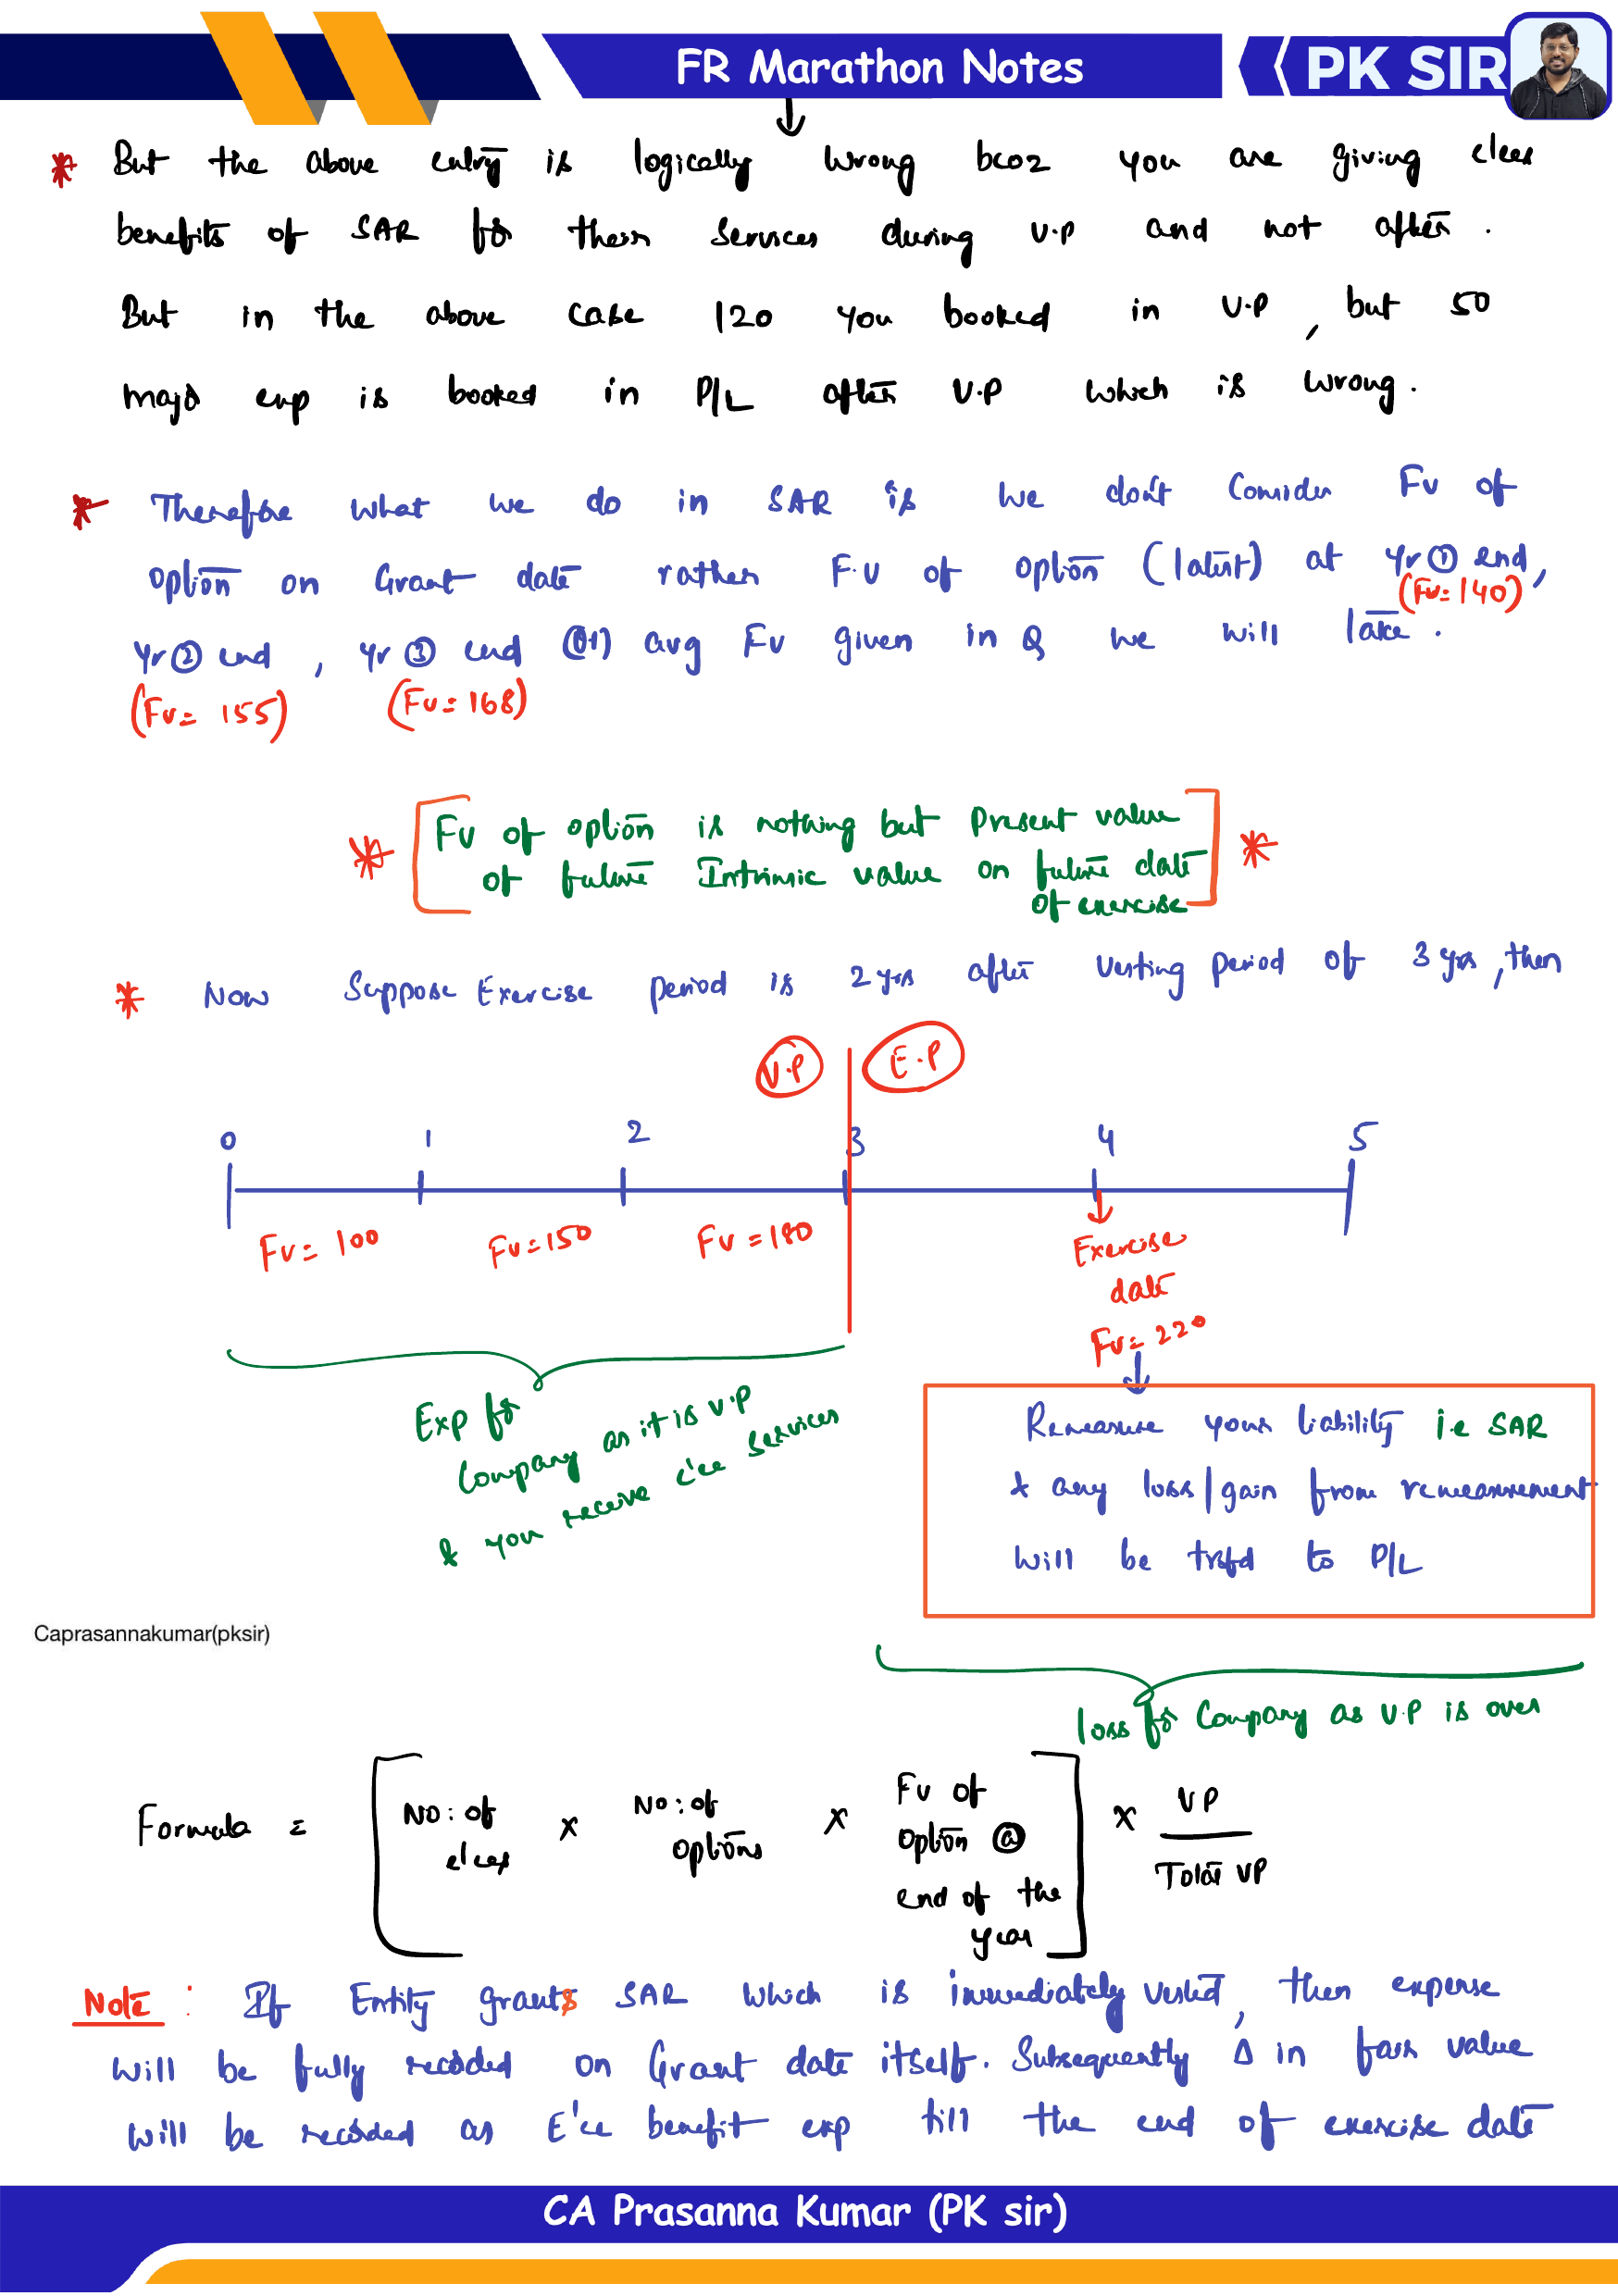 FR Marathon Notes
PK SIR
* But the above entry is logically wrong bcoz you are giving e'ees
benefits of SAR for their services during V.P and not after.
But in the above case 120 you booked in V.P, but 50
major exp is booked in P/L after V.P which is wrong.
* Therefore what we do in SAR is we don't consider FV of
option on Grant date rather F.V of option (latest) at yr ① end,
(FV=140)
yr ② end, yr ③ end (or) avg FV given in Q we will take.
(FV= 155) (FV=168)
* [FV of option is nothing but Present value
of future Intrinsic value on future date
of exercise] *
* Now Suppose Exercise period is 2 yrs after vesting period of 3 yrs, then
V.P E.P
0 1 2 3 4 5
FV= 100 FV=150 FV=180
Exercise
date
FV=220
Exp for
Company as it is V.P
& you receive e'ee services
Remeasure your liability i.e SAR
& any loss/gain from remeasurement
will be trsfd to P/L
Caprasannakumar(pksir)
loss for Company as V.P is over
Formula = [No: of e'ees x No: of options x FV of option @ end of the year] x VP / Total VP
Note: If Entity grants SAR which is immediately vested, then expense
will be fully recorded on Grant date itself. Subsequently Δ in fair value
will be recorded as E'ee benefit exp till the end of exercise date
CA Prasanna Kumar (PK sir)